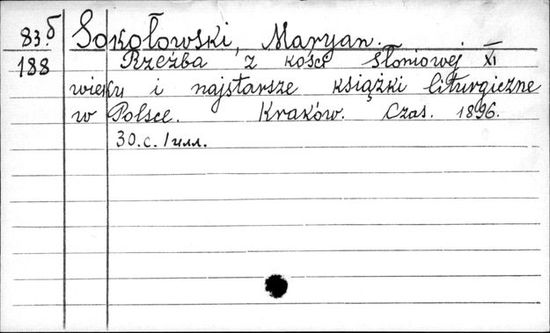 83.б Sokołowski, Maryan.
188 Rzeźba z kości słoniowej XI
wieku i najstarsze książki liturgiczne
w Polsce. Kraków. Czas. 1896.
30.c. 1 илл.